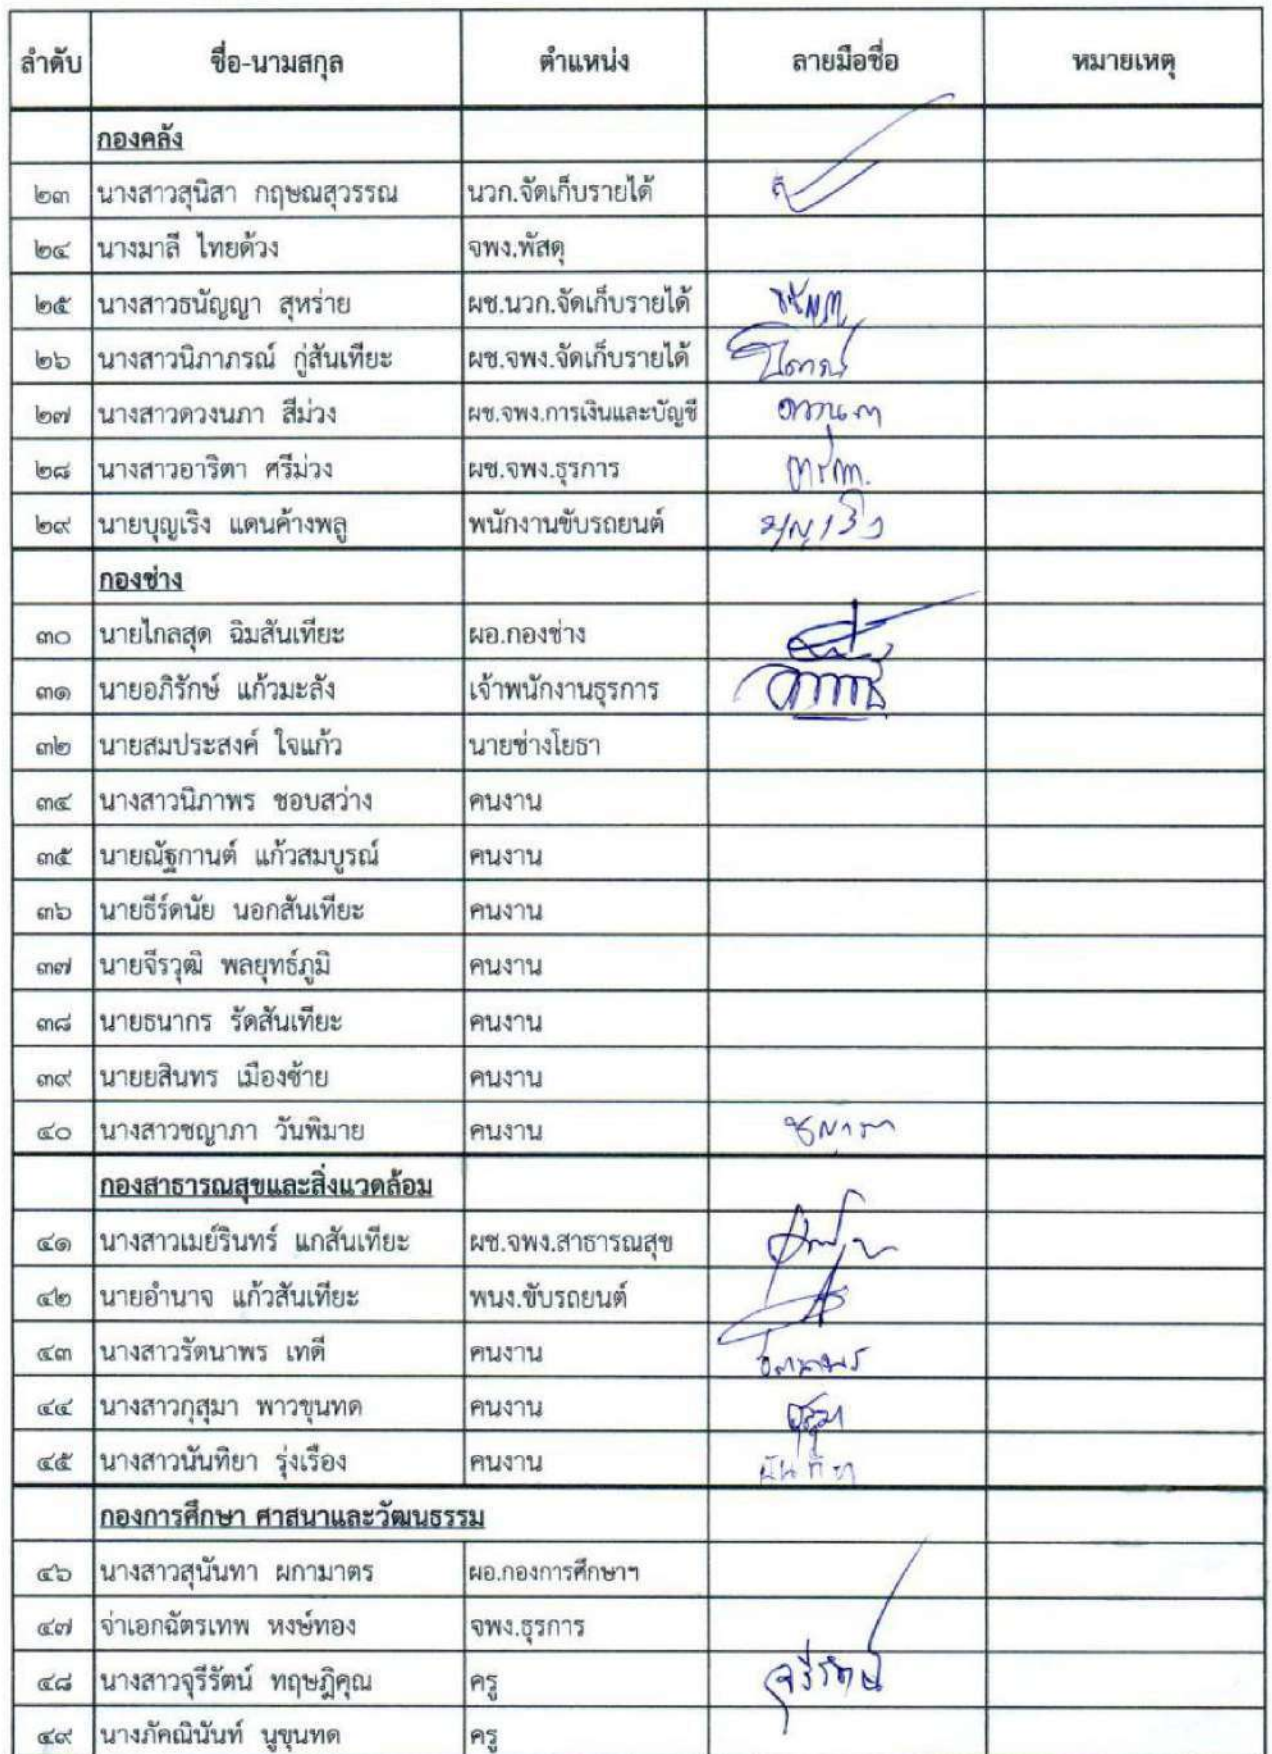 ลำดับ ชื่อ-นามสกุล ตำแหน่ง ลายมือชื่อ หมายเหตุ
กองคลัง
๒๓ นางสาวสุนิสา กฤษณสุวรรณ นวก.จัดเก็บรายได้
๒๔ นางมาลี ไทยด้วง จพง.พัสดุ
๒๕ นางสาวธนัญญา สุหร่าย ผช.นวก.จัดเก็บรายได้
๒๖ นางสาวนิภาภรณ์ กู่สันเทียะ ผช.จพง.จัดเก็บรายได้
๒๗ นางสาวดวงนภา สีม่วง ผช.จพง.การเงินและบัญชี ดวงนภา
๒๘ นางสาวอาริตา ศรีม่วง ผช.จพง.ธุรการ
๒๙ นายบุญเริง แดนค้างพลู พนักงานขับรถยนต์ บุญเริง
กองช่าง
๓๐ นายไกลสุด ฉิมสันเทียะ ผอ.กองช่าง
๓๑ นายอภิรักษ์ แก้วมะลัง เจ้าพนักงานธุรการ
๓๒ นายสมประสงค์ ใจแก้ว นายช่างโยธา
๓๔ นางสาวนิภาพร ชอบสว่าง คนงาน
๓๕ นายณัฐกานต์ แก้วสมบูรณ์ คนงาน
๓๖ นายธีร์ดนัย นอกสันเทียะ คนงาน
๓๗ นายจีรวุฒิ พลยุทธ์ภูมิ คนงาน
๓๘ นายธนากร รัดสันเทียะ คนงาน
๓๙ นายยสินทร เมืองซ้าย คนงาน
๔๐ นางสาวชญาภา วันพิมาย คนงาน ชญาภา
กองสาธารณสุขและสิ่งแวดล้อม
๔๑ นางสาวเมย์รินทร์ แกสันเทียะ ผช.จพง.สาธารณสุข
๔๒ นายอำนาจ แก้วสันเทียะ พนง.ขับรถยนต์
๔๓ นางสาวรัตนาพร เทดี คนงาน รัตนาพร
๔๔ นางสาวกุสุมา พาวขุนทด คนงาน กุสุมา
๔๕ นางสาวนันทิยา รุ่งเรือง คนงาน นันทิยา
กองการศึกษา ศาสนาและวัฒนธรรม
๔๖ นางสาวสุนันทา ผกามาตร ผอ.กองการศึกษาฯ
๔๗ จ่าเอกฉัตรเทพ หงษ์ทอง จพง.ธุรการ
๔๘ นางสาวจุรีรัตน์ ทฤษฎิคุณ ครู จุรีรัตน์
๔๙ นางภัคณินันท์ นูขุนทด ครู